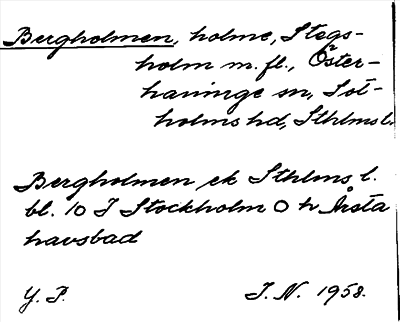 Bergholmen, holme, Stegs-
holm m.fl., Öster-
haninge sn, Sot-
holms hd, Sthlms l.
Bergholmen ek Sthlms l.
bl. 10 I Stockholm O h Årsta
havsbad
Y. P. I. N. 1958.